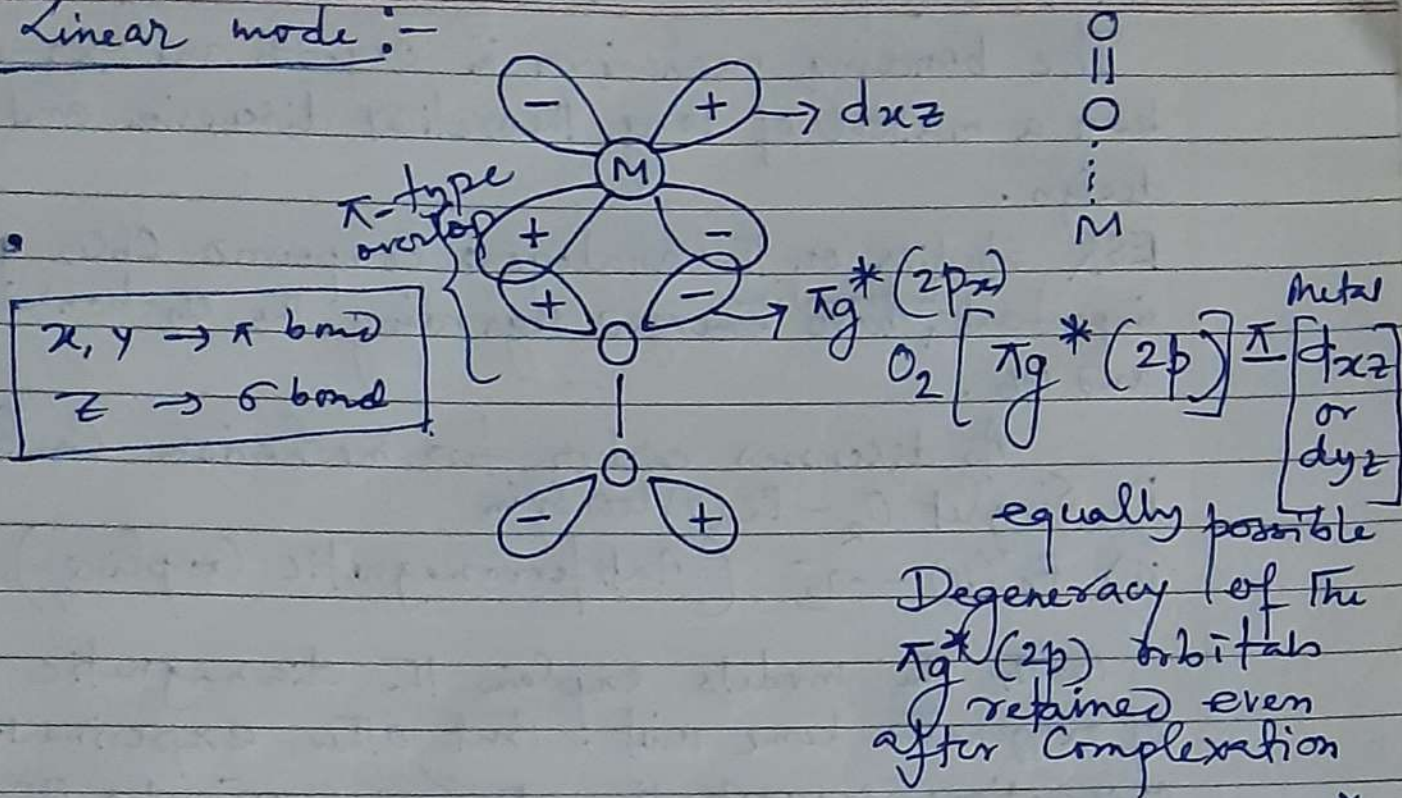 Linear mode :-
O
||
O
M
- + → dxz
M
π-type
overlap
+ -
+ - → πg* (2px)
O
x, y → π bond
z → σ bond
O₂ [πg* (2p)] π [dxz
or
dyz]
Metal
O
- +
equally possible
Degeneracy of the
πg* (2p) orbitals
retained even
after Complexation